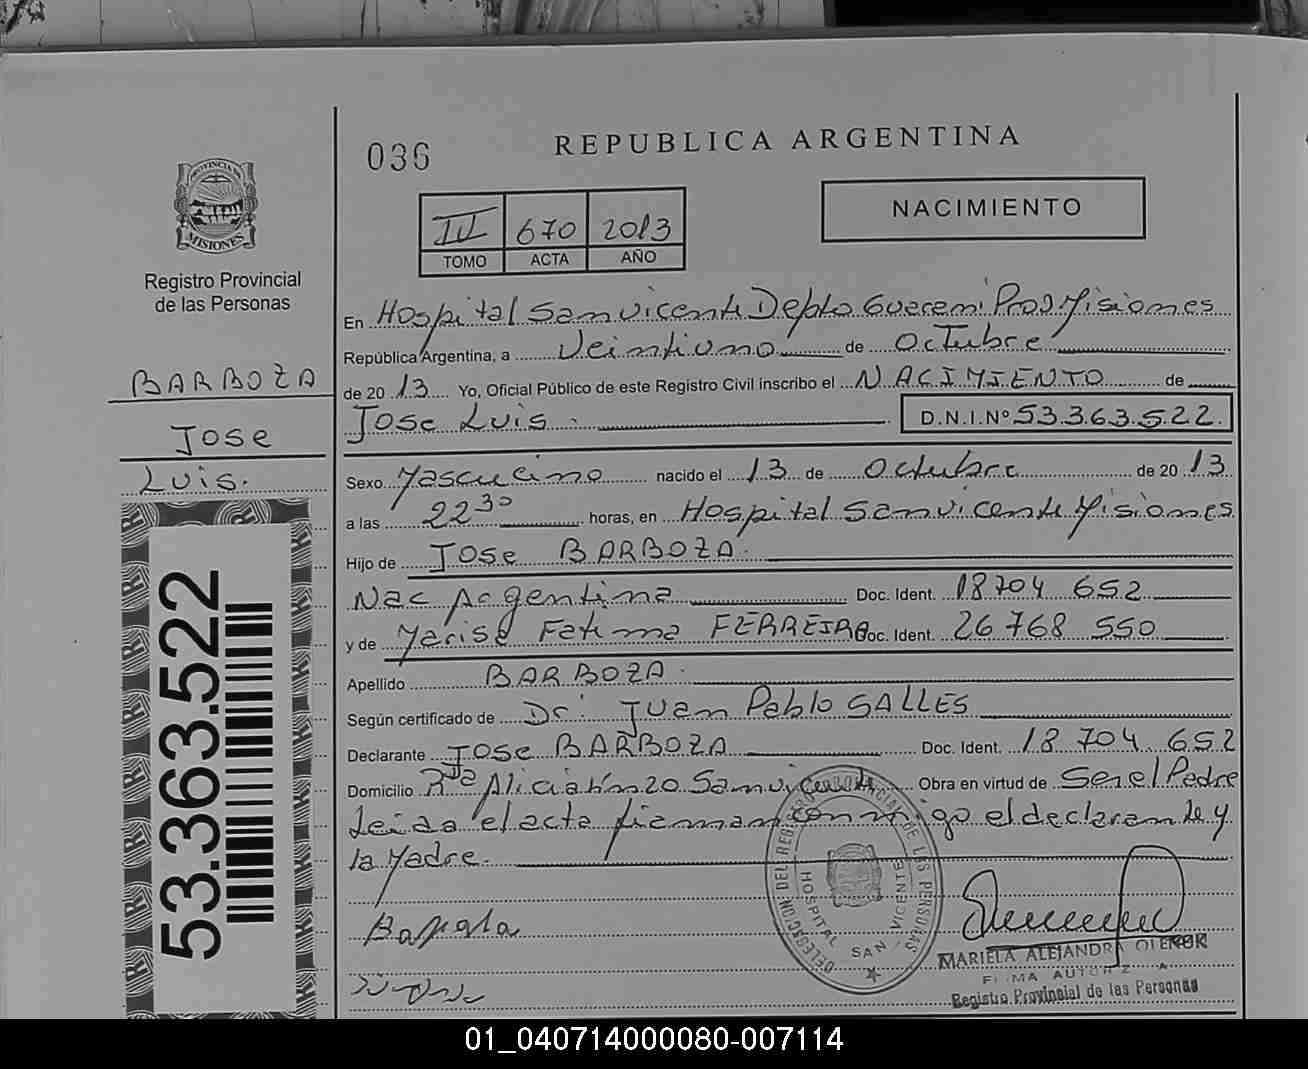 036
REPUBLICA ARGENTINA
PROVINCIA DE
MISIONES
Registro Provincial
de las Personas
III 670 2013
TOMO ACTA AÑO
NACIMIENTO
BARBOZA
Jose
Luis.
53.363.522
En Hospital San vicente Depto Guarani Prov Misiones
República Argentina, a Veintiuno de Octubre
de 2013 Yo, Oficial Público de este Registro Civil inscribo el NACIMIENTO de
Jose Luis. D.N.I.Nº 53.363.522.
Sexo Masculino nacido el 13 de Octubre de 2013
a las 22 30 horas, en Hospital San vicente Misiones
Hijo de Jose BARBOZA.
Nac Argentina Doc. Ident. 18704 652
y de Marisa Fatima FERREIRA Doc. Ident. 26 768 550
Apellido BARBOZA.
Según certificado de Dr. Juan Pablo SALLES
Declarante Jose BARBOZA Doc. Ident. 18 704 652
Domicilio Alicia km 20 San vicente Obra en virtud de Ser el Padre
Leida el acta firman conmigo el declarante y
la Madre.
DELEGACION DEL REGISTRO PROVINCIAL DE LAS PERSONAS
HOSPITAL SAN VICENTE
MARIELA ALEJANDRA
FIRMA AUTORIZADA
Registro Provincial de las Personas
01_040714000080-007114